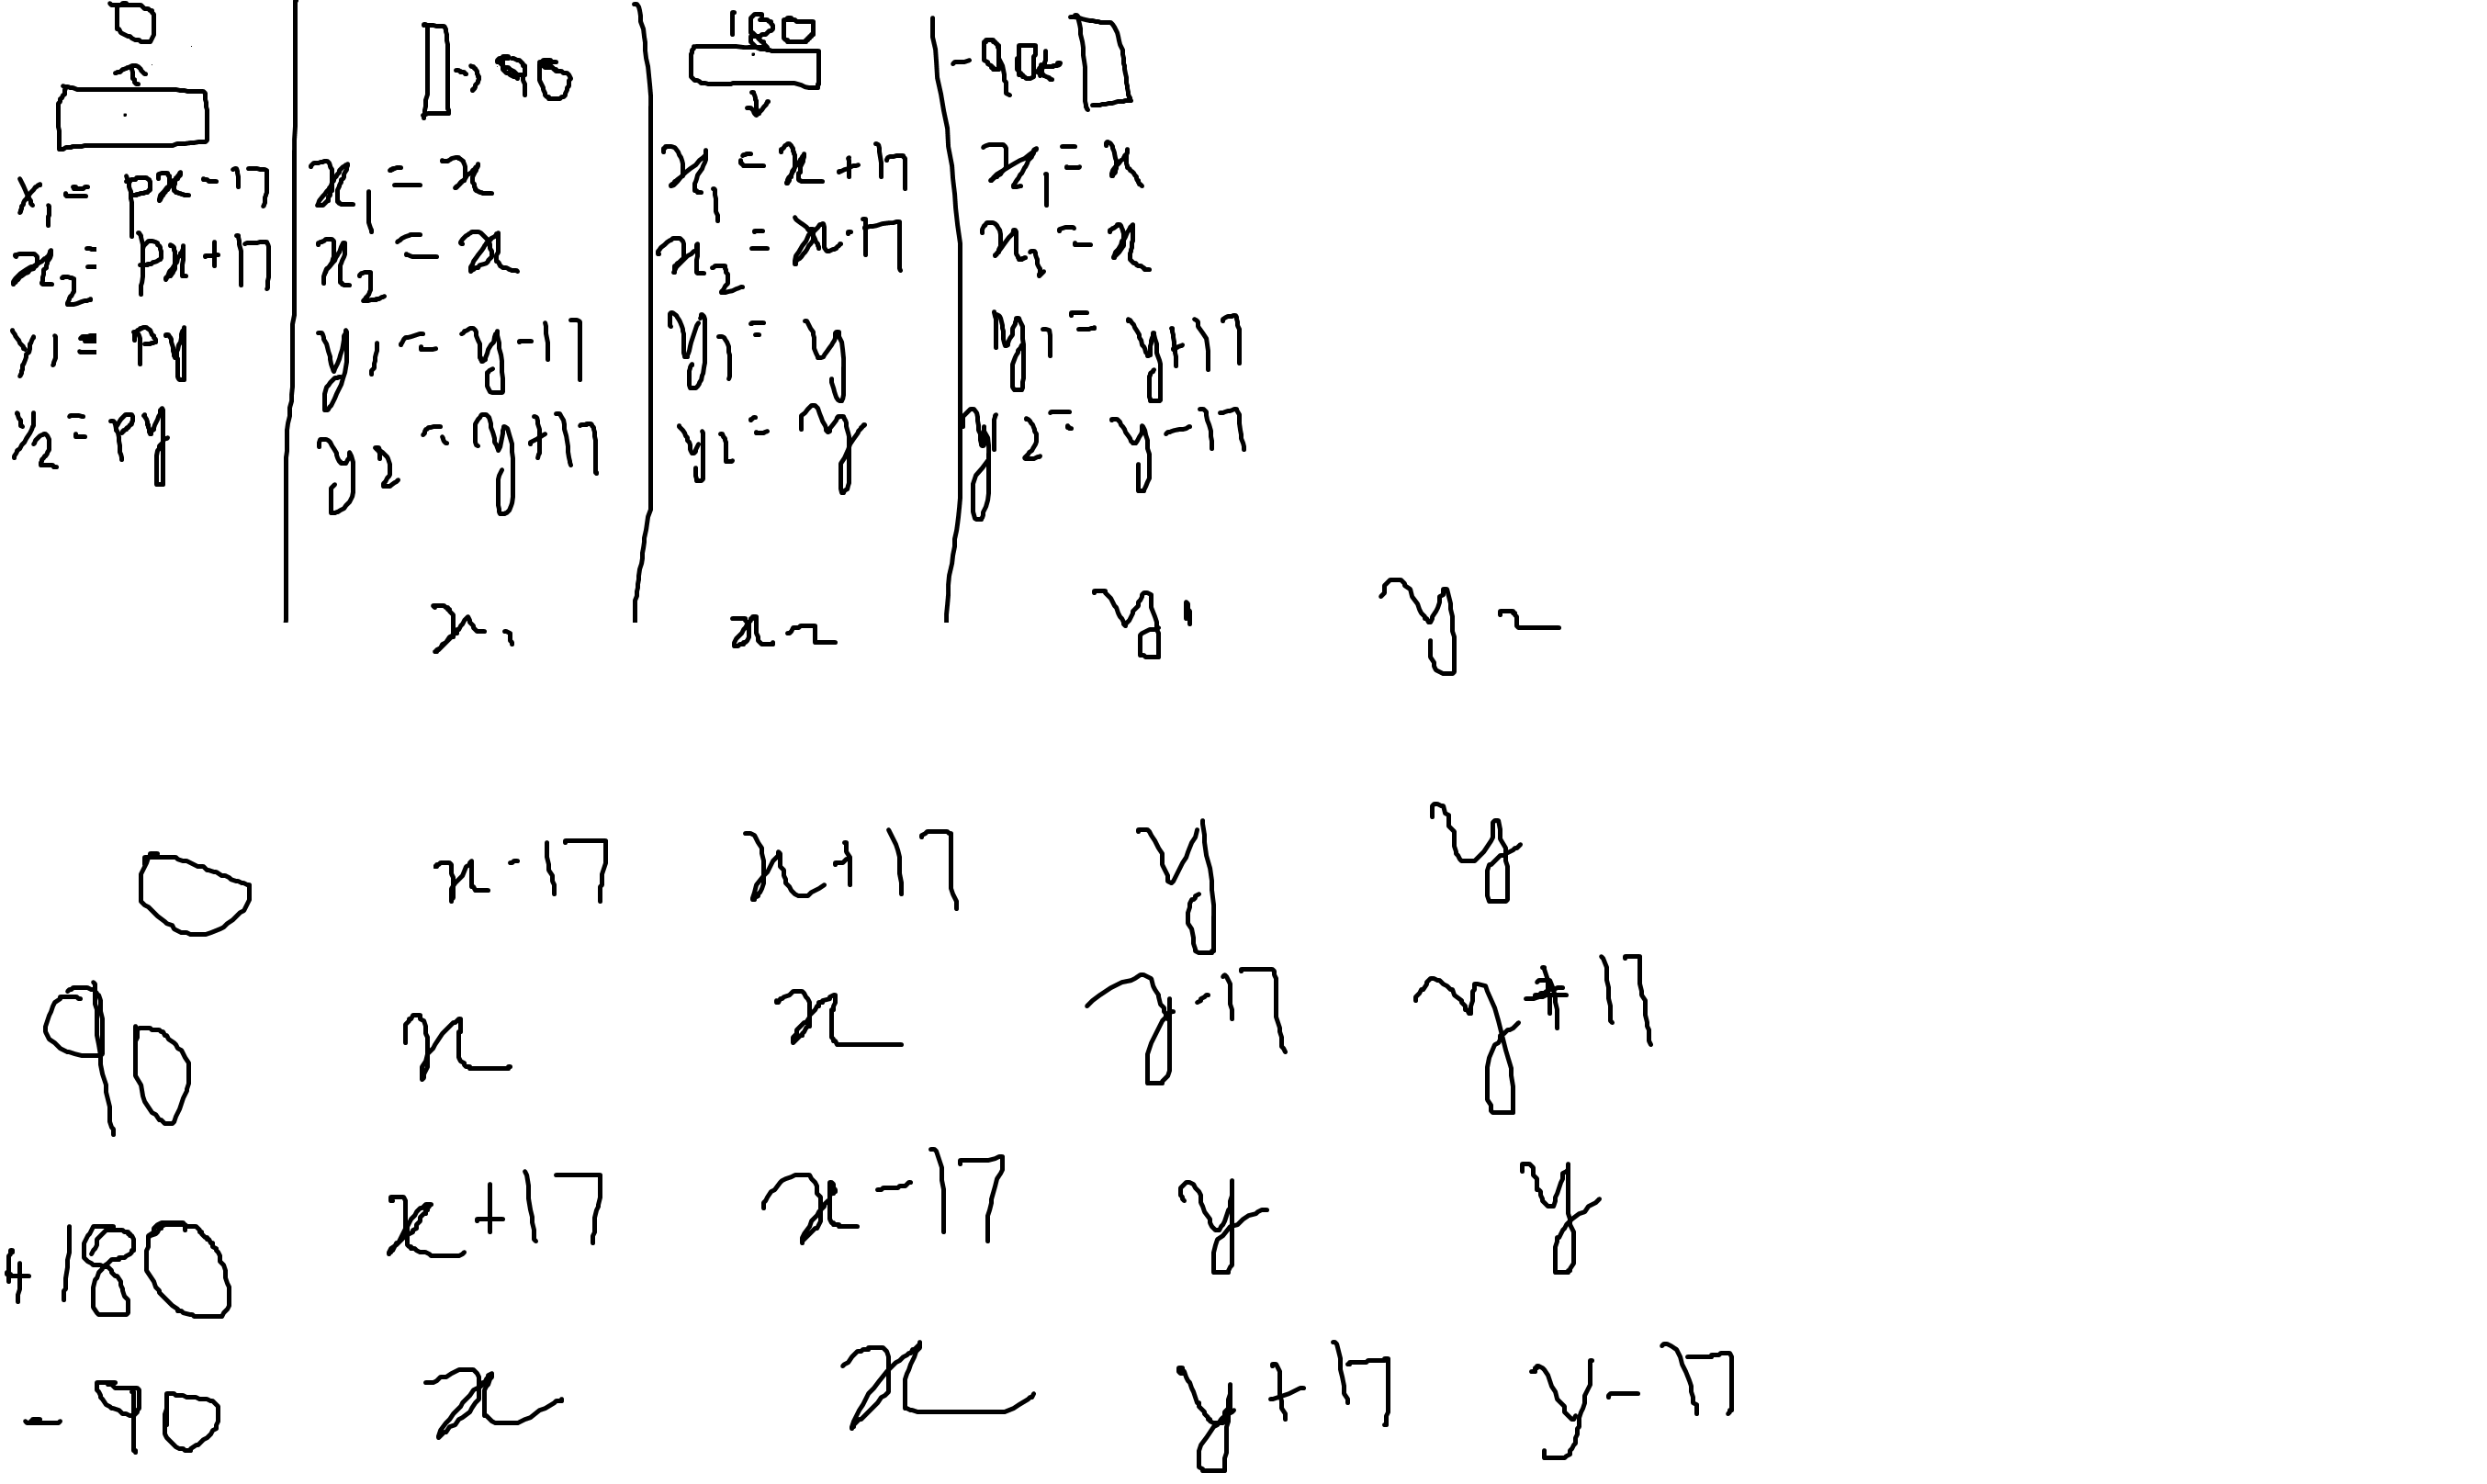 0
x1 = px - 17
x2 = px + 17
y1 = py
y2 = py
90
x1 = x
x2 = x
y1 = y - 17
y2 = y + 17
180
x1 = x + 17
x2 = x - 17
y1 = y
y2 = y
-90
x1 = x
x2 = x
y1 = y + 17
y2 = y - 17
x1 x2 y1 y2
0 x - 17 x + 17 y y
90 x x y - 17 y + 17
+180 x + 17 x - 17 y y
-90 x x y + 17 y - 17